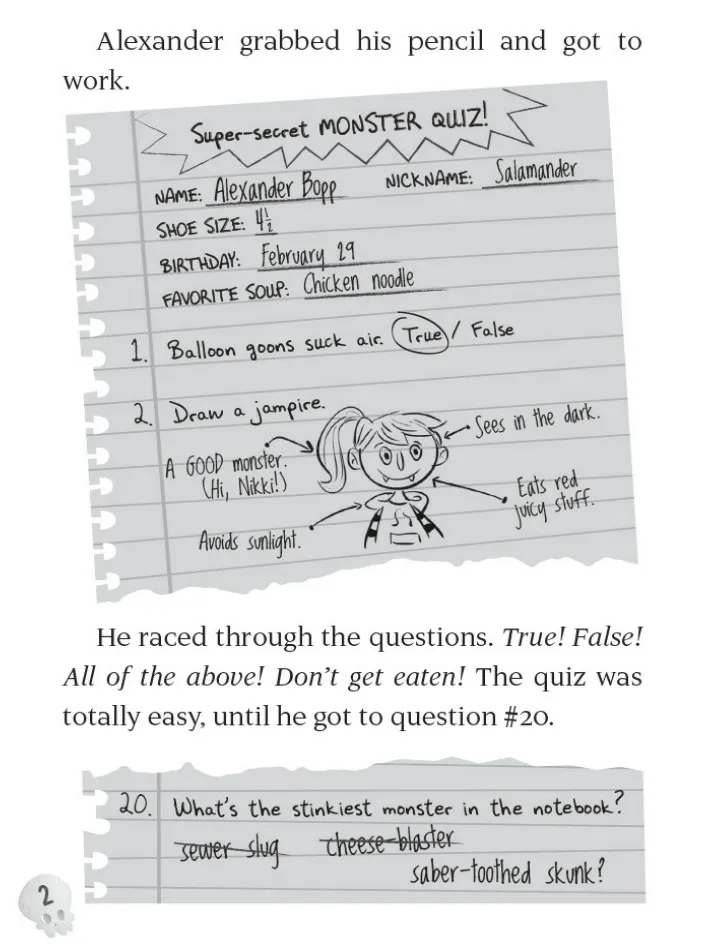 Alexander grabbed his pencil and got to
work.
Super-secret MONSTER QUIZ!
NAME: Alexander Bopp NICKNAME: Salamander
SHOE SIZE: 4½
BIRTHDAY: February 29
FAVORITE SOUP: Chicken noodle
1. Balloon goons suck air. True / False
2. Draw a jampire.
Sees in the dark.
A GOOD monster.
(Hi, Nikki!)
Eats red
juicy stuff.
Avoids sunlight.
He raced through the questions. True! False!
All of the above! Don't get eaten! The quiz was
totally easy, until he got to question #20.
20. What's the stinkiest monster in the notebook?
sewer slug cheese-blaster
saber-toothed skunk?
2